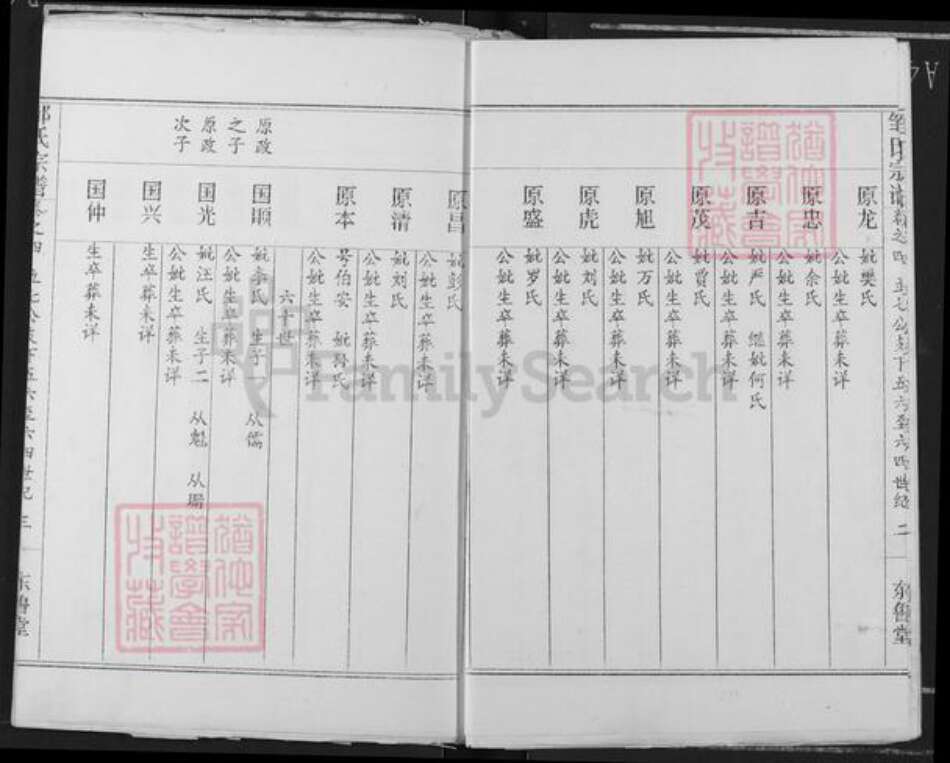 邹氏宗谱卷之四
二
东鲁堂
原龙
妣樊氏
公妣生卒葬未详
原忠
妣余氏
公妣生卒葬未详
原吉
妣严氏 继妣何氏
公妣生卒葬未详
原茂
妣贾氏
公妣生卒葬未详
原旭
妣万氏
公妣生卒葬未详
原虎
妣刘氏
公妣生卒葬未详
原盛
妣罗氏
公妣生卒葬未详
原昌
妣彭氏
公妣生卒葬未详
原清
妣刘氏
公妣生卒葬未详
原本
号伯安 妣 氏
公妣生卒葬未详
六十世
原政之子
国顺
妣李氏 生子 从儒
公妣生卒葬未详
原政次子
国光
妣汪氏 生子二 从魁 从瑞
公妣生卒葬未详
国兴
生卒葬未详
国仲
生卒葬未详
邹氏宗谱卷之四
三
东鲁堂
FamilySearch